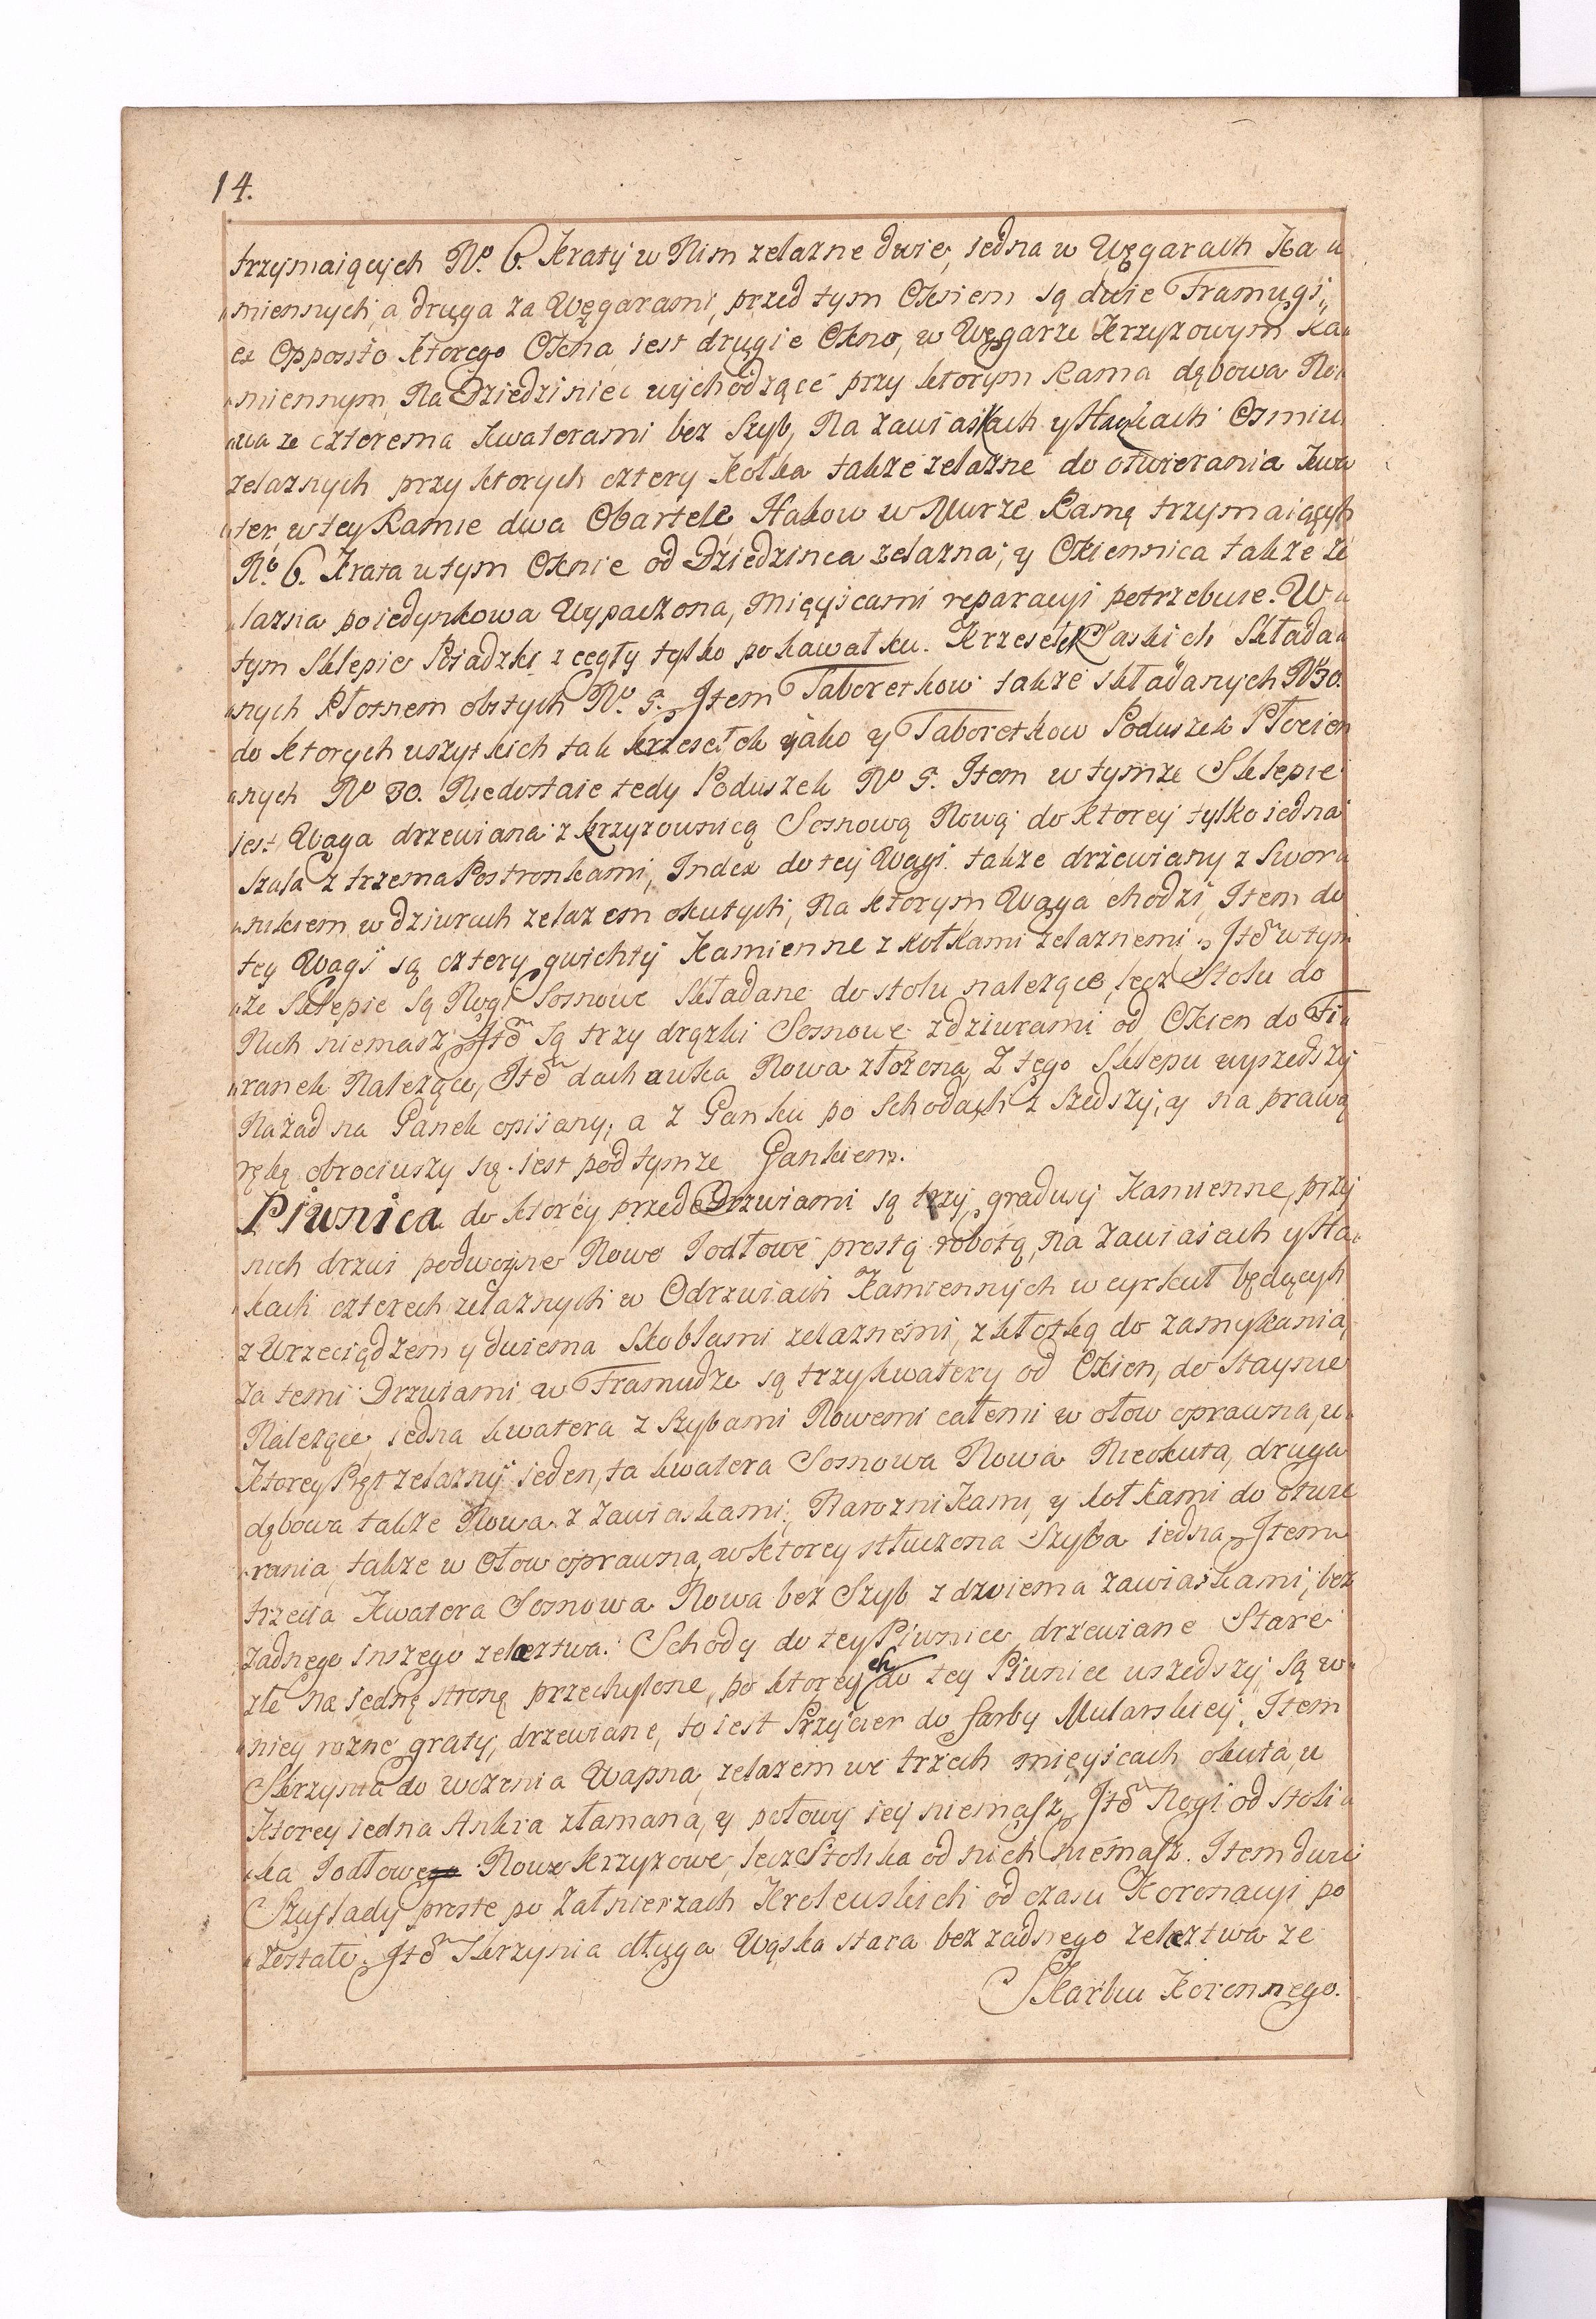 14.
trzymaiących No. 6. Kraty w Nim zelazne dwie, iedna w Węgarach Ka„
„miennych, a druga za Węgarami, przed tym Oknem są dwie Framugi,
ex Opposito ktorego Okna iest drugie Okno, w Węgarze Krzyzowym Ka„
„miennym Na Dziedziniec wychodzące przy ktorym Rama dębowa No„
„wa ze czterema Kwaterami bez Szyb, Na zawiaskach y Haczkach Osmiu
zelaznych przy ktorych cztery Kołka takze zelazne do otwierania Kwa„
„ter, w tey Ramie dwa Obartele Hakow w Murze Ramę trzymaiących
No. 6. Krata w tym Oknie od Dziedzinca zelazna, y Okiennica takze ze„
„lazna poiedynkowa Wypaczona, Mieyscami reparacyi potrzebuie. W„
tym Sklepie Posadzki z cegły tylko po kawałku. Krzesełek Saskich Składa„
„nych Płotnem obitych No. 5. Item Taboretkow takze składanych No 30.
do ktorych wszytkich tak krzesełek jako y Taboretkow Poduszek Płocien
„nych No 30. Niedostaie tedy Poduszek No 5. Item w tymze Sklepie
iest Waga drzewiana z krzyzownicą Sosnową Nową do ktorey tylko iedna
Szala z trzema Postronkami, Index do tey Wagi takze drzewiany z Swora„
„nikiem w dziurach zelazem okutych, Na ktorym Waga chodzi, Item do
tey Wagi są cztery gwichty Kamienne z kołkami zelaznemi, Itd w tym
„ze Sklepie są Nogi Sosnowe Składane do stolu nalezące, lecz Stolu do
Nich niemasz Itd są trzy drązki Sosnowe z dziurami od Okien do Fi„
„ranek Nalezące, Itd dachowka Nowa złozona, Z tego Sklepu wyszedszy
Nazad na Ganek opisany, a z Ganku po Schodach z szedszy, y na prawą
rękę obrociwszy się iest pod tymze Gankiem.
Piwnica do ktorey przede Drzwiami są trzy gradusy Kamienne, przy
nich drzwi podwoyne Nowe Iodłowe prostą robotą, na Zawiasach y Ha„
„kach czterech zelaznych w Odrzwiach Kamiennych w cyrkuł będących
z Wrzeciądzem y dwiema Skoblami zelaznemi, z kłotką do zamykania,
Za temi Drzwiami w Framudze są trzy kwatery od Okien, do Staynie
Nalezące, iedna kwatera z Szybami Nowemi całemi w ołow oprawna, u„
Ktorey Pręt zelazny ieden, ta kwatera Sosnowa Nowa Nieokuta, druga
dębowa takze Nowa z zawiaskami, Naroznikami, y kołkami do otwie
„rania, takze w Ołow oprawna, w ktorey stłuczona Szyba iedna, Item
trzecia Kwatera Sosnowa Nowa bez Szyb z dwiema zawiaskami, bez
zadnego inszego zelaztwa. Schody do tey Piwnice drzewiane Stare
złe na iednę stronę przechylone, po ktorych do tey Piwnice wszedszy, są w„
„niey rozne graty, drzewiane, to iest Przycier do farby Mularskiey, Item
Skrzynia do wozenia Wapna, zelazem we trzech mieyscach okuta, u
Ktorey iedna Ankra złamana, y połowy iey niemasz, Itd Nogi od stoli„
„ka Iodłowe Nowe krzyzowe, lecz Stolika od nich niemasz. Item dwie
Szuflady proste po Załnierzach Krolewskich od czasu Koronacyi po
„zostałe. Itd Skrzynia długa Wąska stara bez zadnego zelaztwa ze
Skarbu Koronnego.